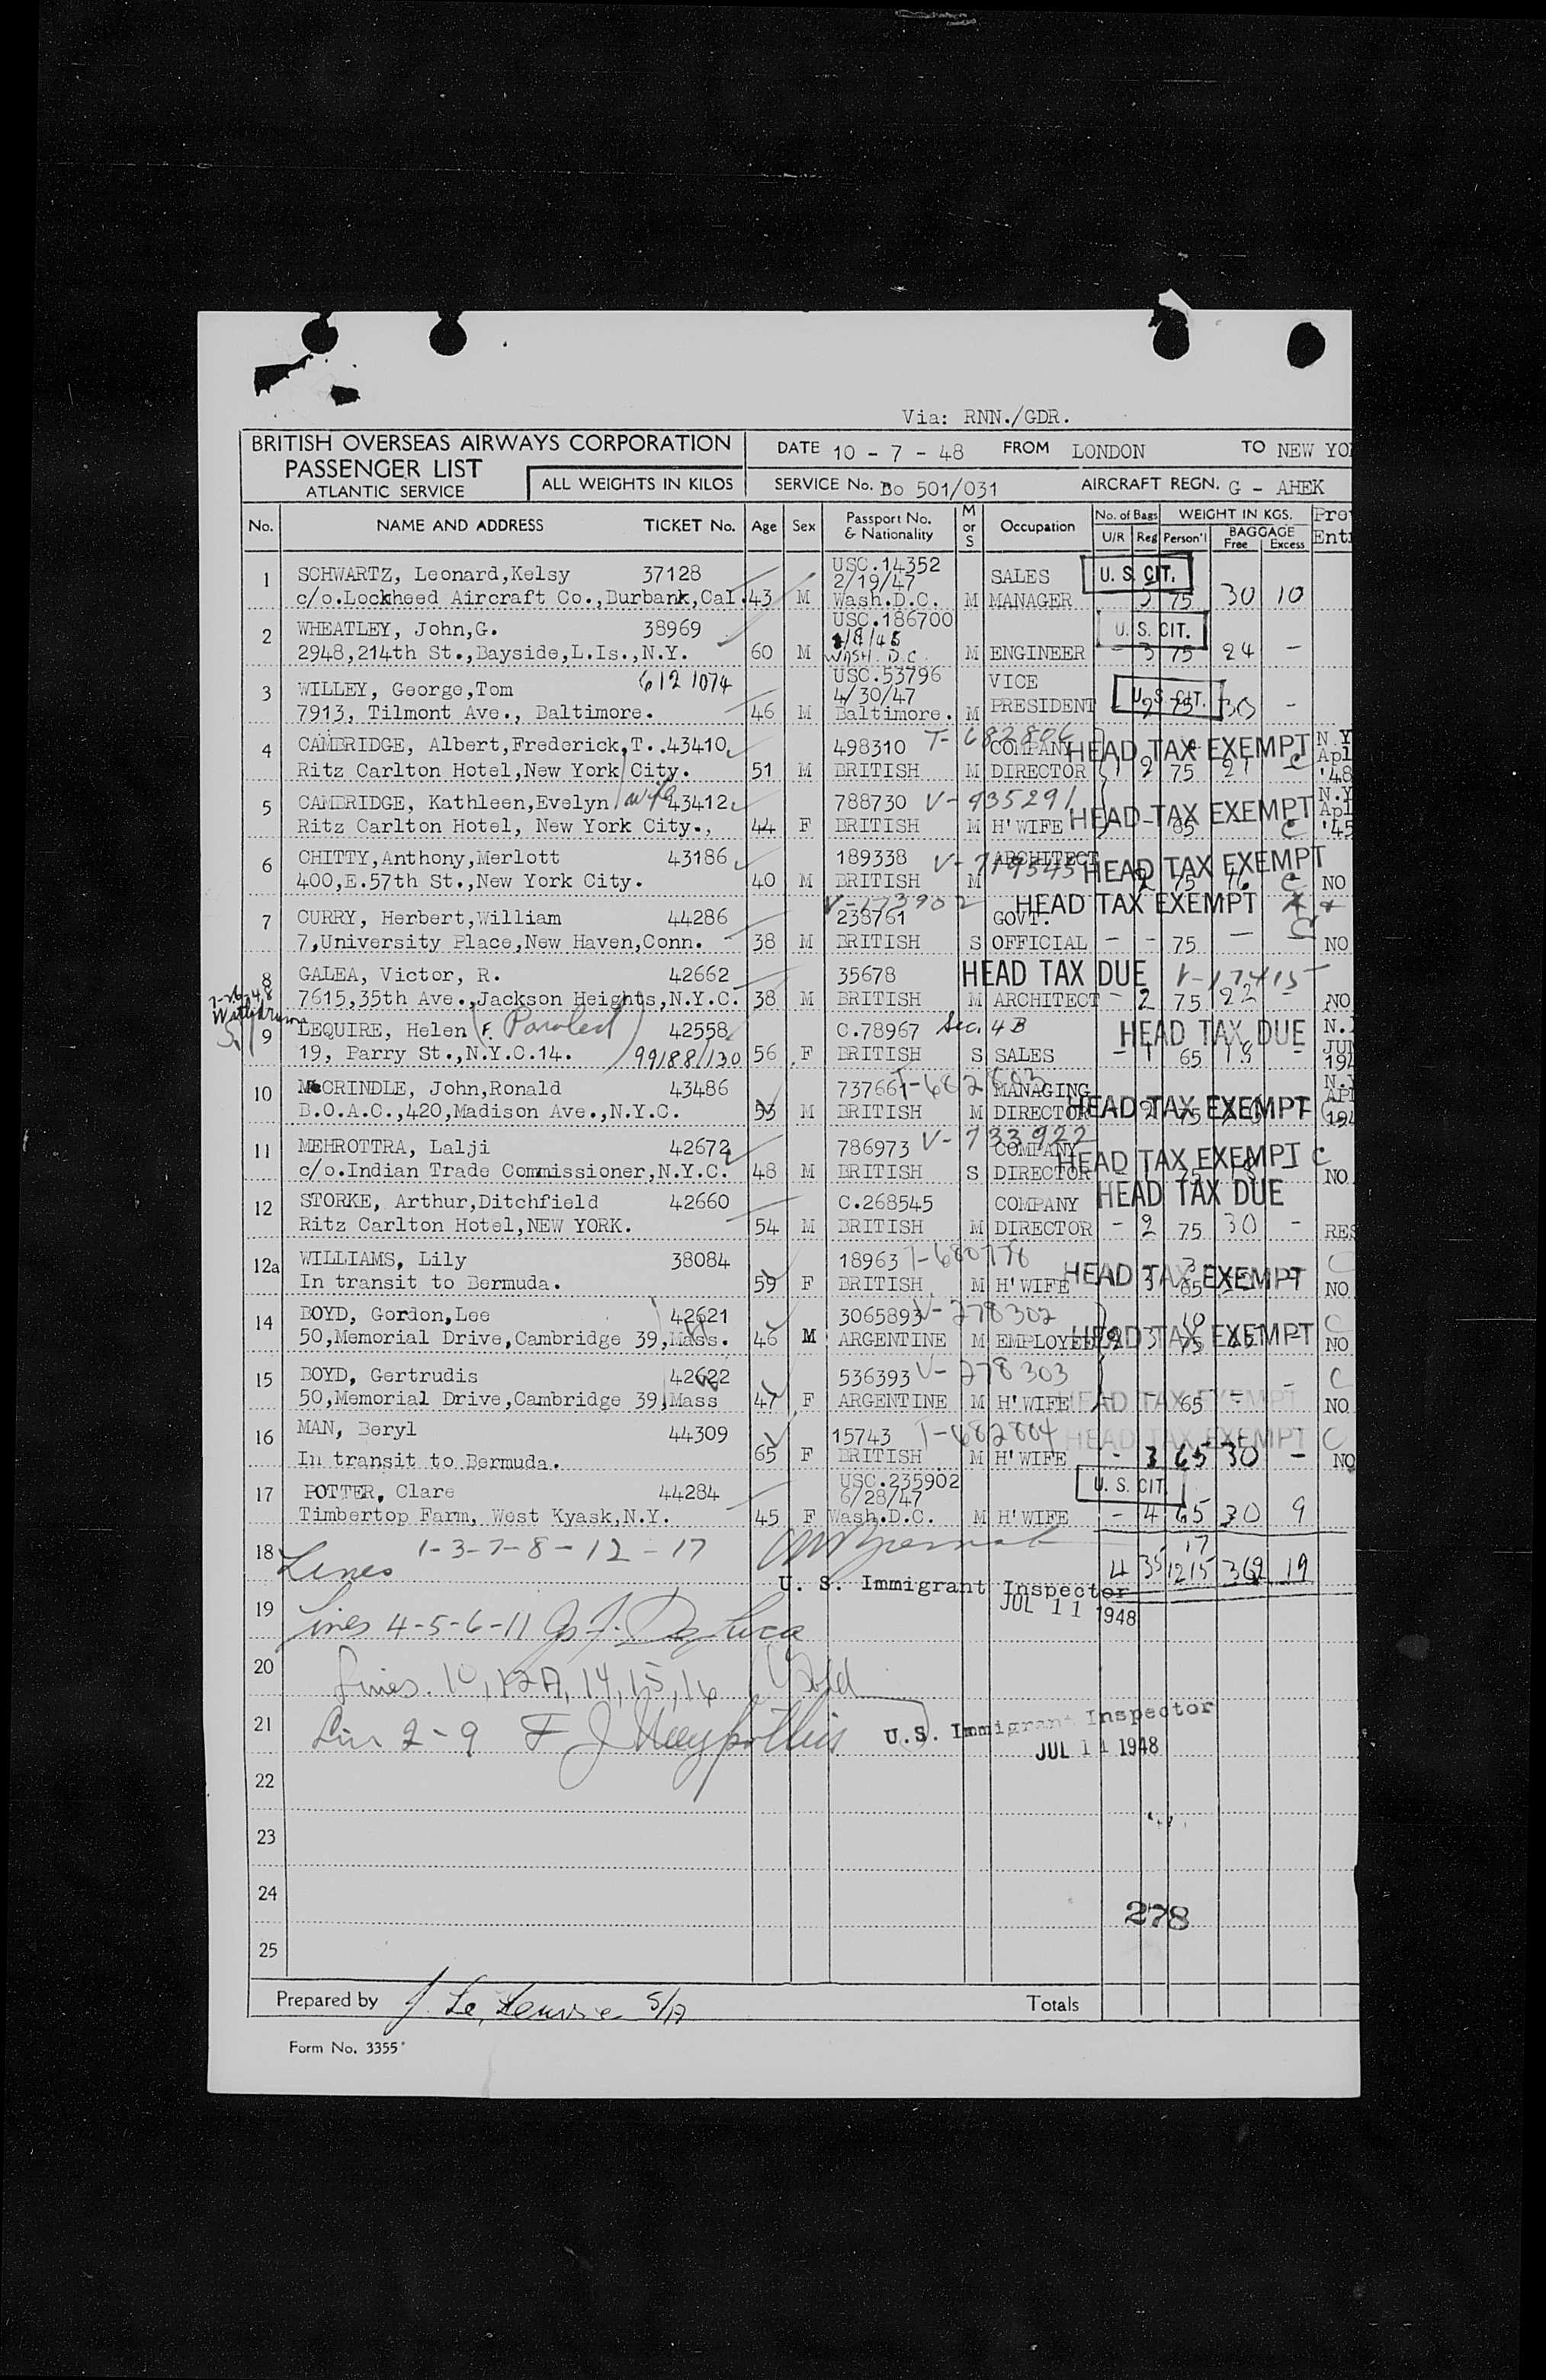 Via: RNN./GDR.
BRITISH OVERSEAS AIRWAYS CORPORATION
PASSENGER LIST
ATLANTIC SERVICE
ALL WEIGHTS IN KILOS
DATE 10 - 7 - 48 FROM LONDON TO NEW YO
SERVICE No. Bo 501/031 AIRCRAFT REGN. G - AHEK
No. NAME AND ADDRESS TICKET No. Age Sex Passport No. & Nationality M or S Occupation No. of Bags U/R Reg WEIGHT IN KGS. Person'l BAGGAGE Free Excess
1 SCHWARTZ, Leonard,Kelsy 37128 USC.14352 2/19/47 SALES U. S. CIT.
c/o.Lockheed Aircraft Co.,Burbank,Cal. 43 M Wash.D.C. M MANAGER 3 75 30 10
2 WHEATLEY, John,G. 38969 USC.186700 U. S. CIT.
2948,214th St.,Bayside,L.Is.,N.Y. 60 M WASH. D.C. M ENGINEER - 3 75 24 -
3 WILLEY, George,Tom 6121074 USC.53796 4/30/47 VICE U. S. CIT.
7913, Tilmont Ave., Baltimore. 46 M Baltimore. M PRESIDENT - 2 75 30 -
4 CAMBRIDGE, Albert,Frederick,T.. 43410 498310 T-682806 COMPANY HEAD TAX EXEMPT N.Y Apl
Ritz Carlton Hotel,New York City. 51 M BRITISH M DIRECTOR 1 2 75 21 '48
5 CAMBRIDGE, Kathleen,Evelyn wife 43412 788730 V-935291 HEAD TAX EXEMPT N.Y Apl
Ritz Carlton Hotel, New York City., 44 F BRITISH M H'WIFE 65 '45
6 CHITTY,Anthony,Merlott 43186 189338 V-719545 ARCHITECT HEAD TAX EXEMPT
400,E.57th St.,New York City. 40 M BRITISH M 2 75 16 NO
7 CURRY, Herbert,William 44286 V-173902 238761 GOVT. HEAD TAX EXEMPT
7,University Place,New Haven,Conn. 38 M BRITISH S OFFICIAL - - 75 - NO
8 GALEA, Victor, R. 42662 35678 HEAD TAX DUE V-17415
7615,35th Ave.,Jackson Heights,N.Y.C. 38 M BRITISH M ARCHITECT - 2 75 22 - NO
Withdrawn
9 LEQUIRE, Helen F. (Paroled) 42558 C.78967 Sec. 4 B HEAD TAX DUE
19, Parry St.,N.Y.C.14. 99188/130 56 F BRITISH S SALES - 1 65 18 -
10 McCRINDLE, John,Ronald 43486 73766 T-682803 MANAGING
B.O.A.C.,420,Madison Ave.,N.Y.C. 53 M BRITISH M DIRECTOR HEAD TAX EXEMPT
11 MEHROTTRA, Lalji 42672 786973 V-733922 COMPANY HEAD TAX EXEMPT C
c/o.Indian Trade Commissioner,N.Y.C. 48 M BRITISH S DIRECTOR 75 NO
12 STORKE, Arthur,Ditchfield 42660 C.268545 COMPANY HEAD TAX DUE
Ritz Carlton Hotel,NEW YORK. 54 M BRITISH M DIRECTOR - 2 75 30 - RES
12a WILLIAMS, Lily 38084 18963 T-680778 HEAD TAX EXEMPT
In transit to Bermuda. 59 F BRITISH M H'WIFE 3 65 NO
14 BOYD, Gordon,Lee 42621 3065893 V-278302 HEAD TAX EXEMPT
50,Memorial Drive,Cambridge 39,Mass. 46 M ARGENTINE M EMPLOYEE 2 3 75 NO
15 BOYD, Gertrudis 42622 536393 V-278303 C
50,Memorial Drive,Cambridge 39,Mass 47 F ARGENTINE M H'WIFE HEAD TAX EXEMPT - 65 - NO
16 MAN, Beryl 44309 15743 T-682804 HEAD TAX EXEMPT C
In transit to Bermuda. 65 F BRITISH M H'WIFE - 3 65 30 - NO
17 POTTER, Clare 44284 USC.235902 6/28/47 U. S. CIT.
Timbertop Farm, West Kyask,N.Y. 45 F Wash.D.C. M H'WIFE - 4 65 30 9
18 Lines 1-3-7-8-12-17 17 4 35 1215 369 19
U. S. Immigrant Inspector
JUL 11 1948
19 Lines 4-5-6-11
20 Lines. 10,12A,14,15,16
21 Lin 2-9 F J
U.S. Immigrant Inspector
JUL 11 1948
22
23
24
278
25
Prepared by Totals
Form No. 3355